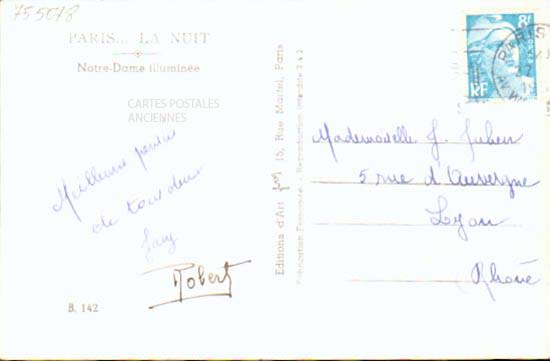 755078
PARIS... LA NUIT
Notre-Dame illuminée
CARTES POSTALES
ANCIENNES
Meilleures pensées
de tous deux
Robert
B. 142
Editions d'Art 15, Rue Martel, Paris
Fabrication Française. Reproduction Interdite
RF
PARIS
Mademoiselle J. Julien
5 rue d'Auvergne
Lyon
Rhône